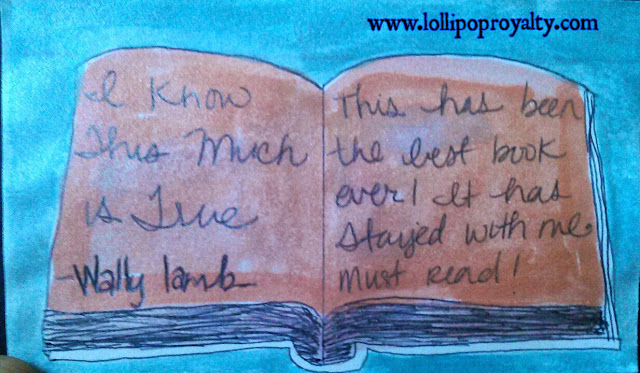 www.lollipoproyalty.com
I Know
This Much
is True
-Wally lamb
This has been
the best book
ever! It has
stayed with me
Must read!